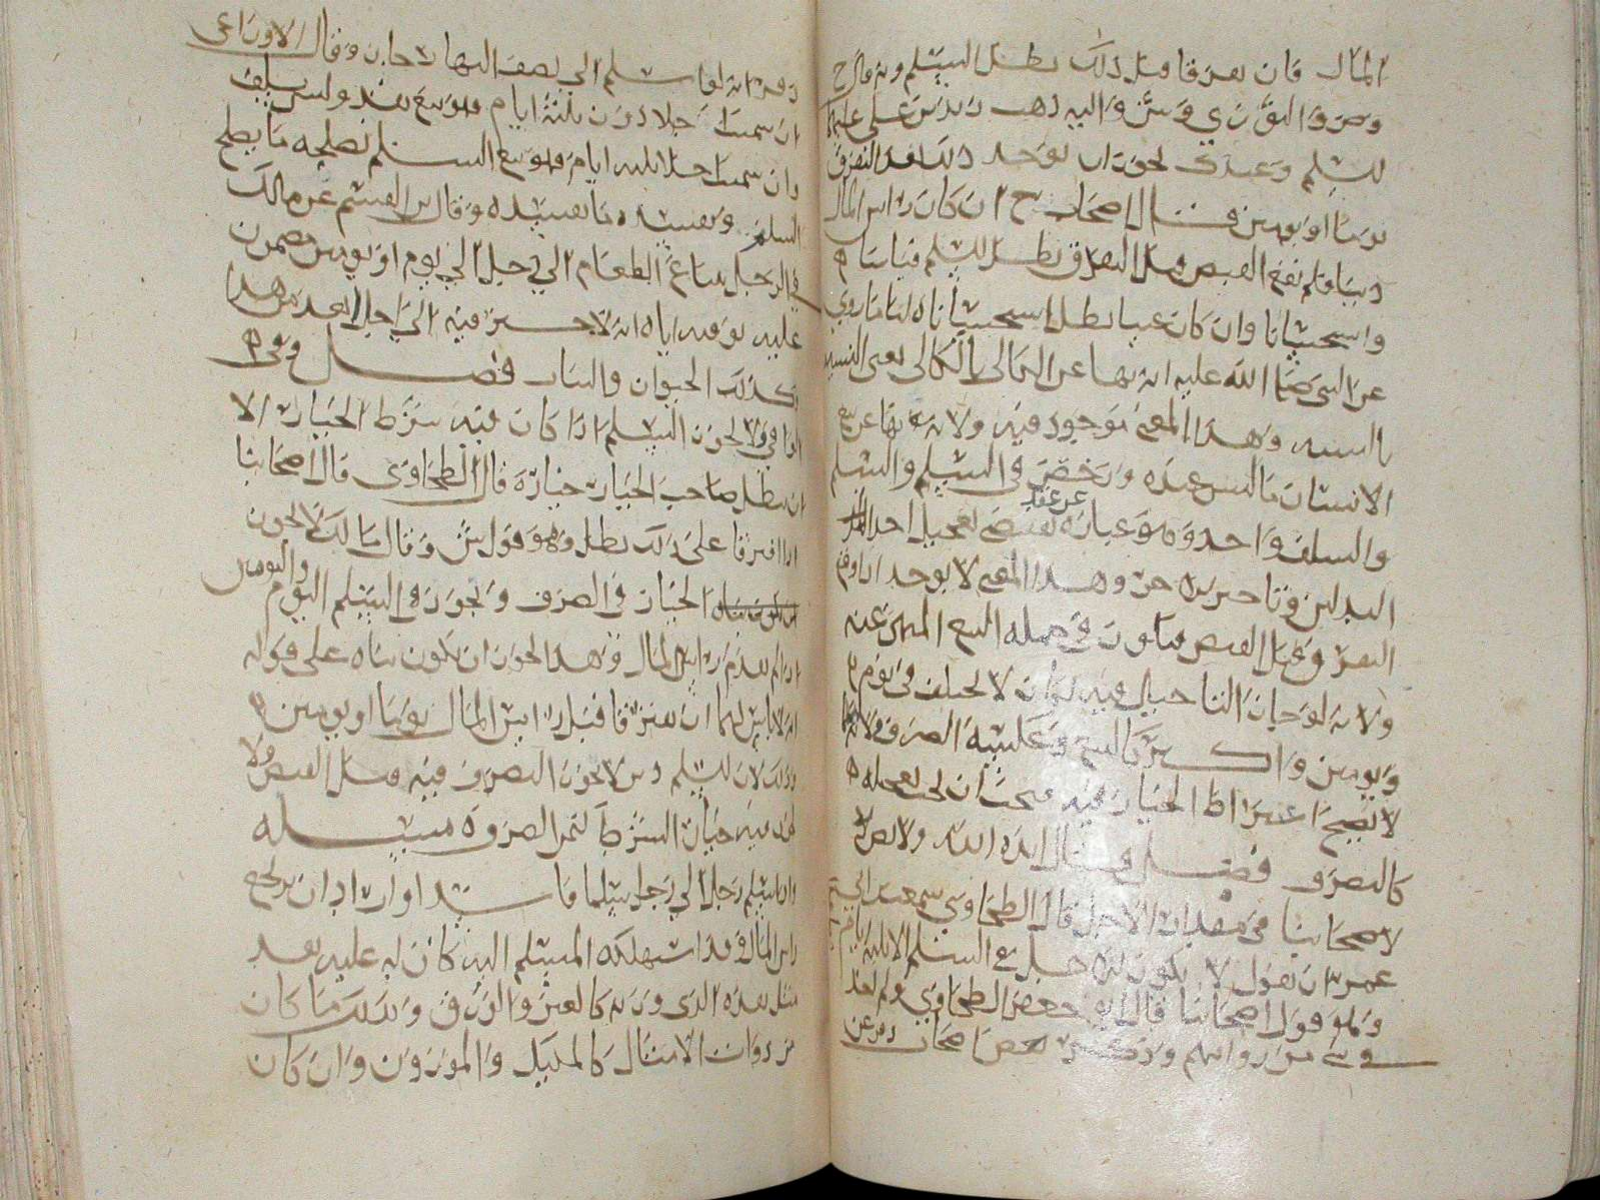 المال فان تفرقا قبل ذلك بطل السلم وبه قال ح
وص والثوري وش واليه ذهب زيد بن علي عليهما
السلم وعندك يجوز ان يوخر ذلك بعد التفرق
يوما او يومين قال اصحاب ح ان كان راس المال
دينا فلم يقع القبض قبل التفرق بطل السلم قياسا
واستحسانا وان كان عينا بطل استحسانا لنا ما روي
عن النبي صلى الله عليه انه نهى عن الكالي بالكالي يعني النسيه
بالنسيه وهذا المعنى موجود فيه ولانه نهى عن بيع
الانسان ما ليس عنده ورخص في السلم والسلم
والسلف واحد وهو عباره عن عقد يقتضي تعجيل احد
البدلين وتاخير الاخر وهذا المعنى لا يوجد اذا وقع
التفرق قبل القبض فيكون في جمله البيع المنهي عنه
ولانه لو جاز التاخير فيه لكان لا يختلف في يوم
ويومين واكثر كالبيع وعكسه الصرف ولانه
لا يصح اشتراط الخيار فيه فيجب ان يجب تعجيله
كالصرف فصل قال ايده الله ولا نص
لاصحابنا في مقدار الاجل قال الطحاوي سمعت ابن ابي
عمران يقول لا يكون اجل في السلم الا ثلثه ايام
وهو قول اصحابنا قال ابو جعفر الطحاوي ولم نجد
في شي من رواياتهم وذكر بعض اصحاب
انه لو اسلم الى نصف النهار لا جاز وقال الاوزاعي
ان سميت اجلا دون ثلثة ايام فهو بيع نقد وليس بسلف
وان سميت اجلا ثلثه ايام فهو بيع السلم يصلحه ما يصلح
السلف ويفسده ما يفسده وقال بن القسم عن مالك
في الرجل يبتاع الطعام الي اجل الي يوم او يومين مضمون
عليه يوفيه اياه انه لا خير فيه الى اجل ابعد من هذا
وكذلك الحيوان والثياب فصل
ولا يجوز السلم اذا كان فيه شرط الخيار الا
ان يبطل صاحب الخيار خياره قال الطحاوي قال اصحابنا
اذا افترقا على ذلك بطل وهو قول ش وقال مالك لا يجوز
الخيار في الصرف ويجوز في السلم اليوم واليومين
اذا لم يقدم راس المال وهذا يجوز ان يكون بناه على قوله
انه لا باس لهما ان يفترقا قبل راس المال يوما او يومين
وذلك لان السلم دين لا يجوز التصرف فيه قبل القبض ولا
يجوز فيه خيار الشرط كثمن الصرف مسئله
وان اسلم رجل الي رجل سلما فاسدا واراد ان يرتجع
راس المال وقد استهلكه المسلم اليه كان له عليه بعد
مثل نقده الذي وزنه كالعين والورق وكذلك ما كان
من ذوات الامثال كالمكيل والموزون وان كان